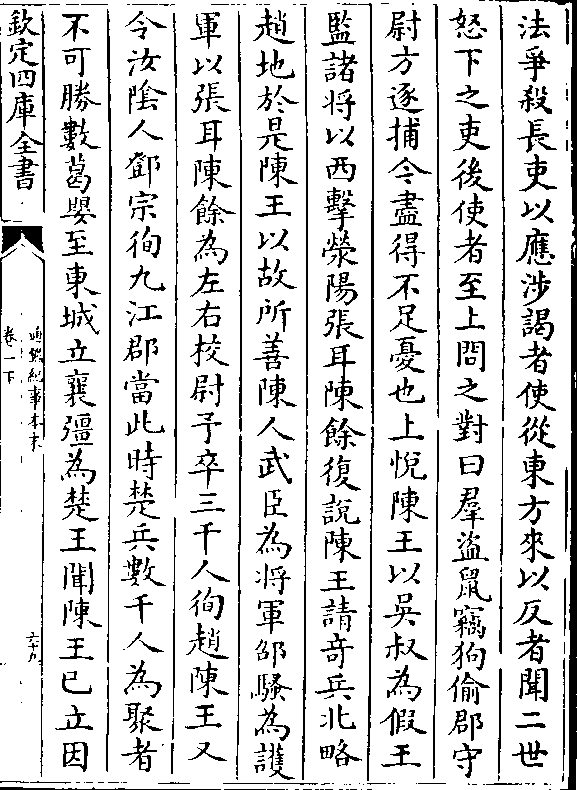 法爭殺長吏以應涉謁者使從東方來以反者聞二世
怒下之吏後使者至上問之對曰羣盜鼠竊狗偷郡守
尉方逐捕今盡得不足憂也上悅陳王以吳叔為假王
監諸将以西擊滎陽張耳陳餘復說陳王請竒兵北略
趙地於是陳王以故所善陳人武臣為将軍邵騷為護
軍以張耳陳餘為左右校尉予卒三千人徇趙陳王又
令汝隂人鄧宗徇九江郡當此時楚兵數千人為聚者
不可勝數葛嬰至東城立襄彊為楚王聞陳王已立因
欽定四庫全書
通鑑紀事本末
卷一下
六十九